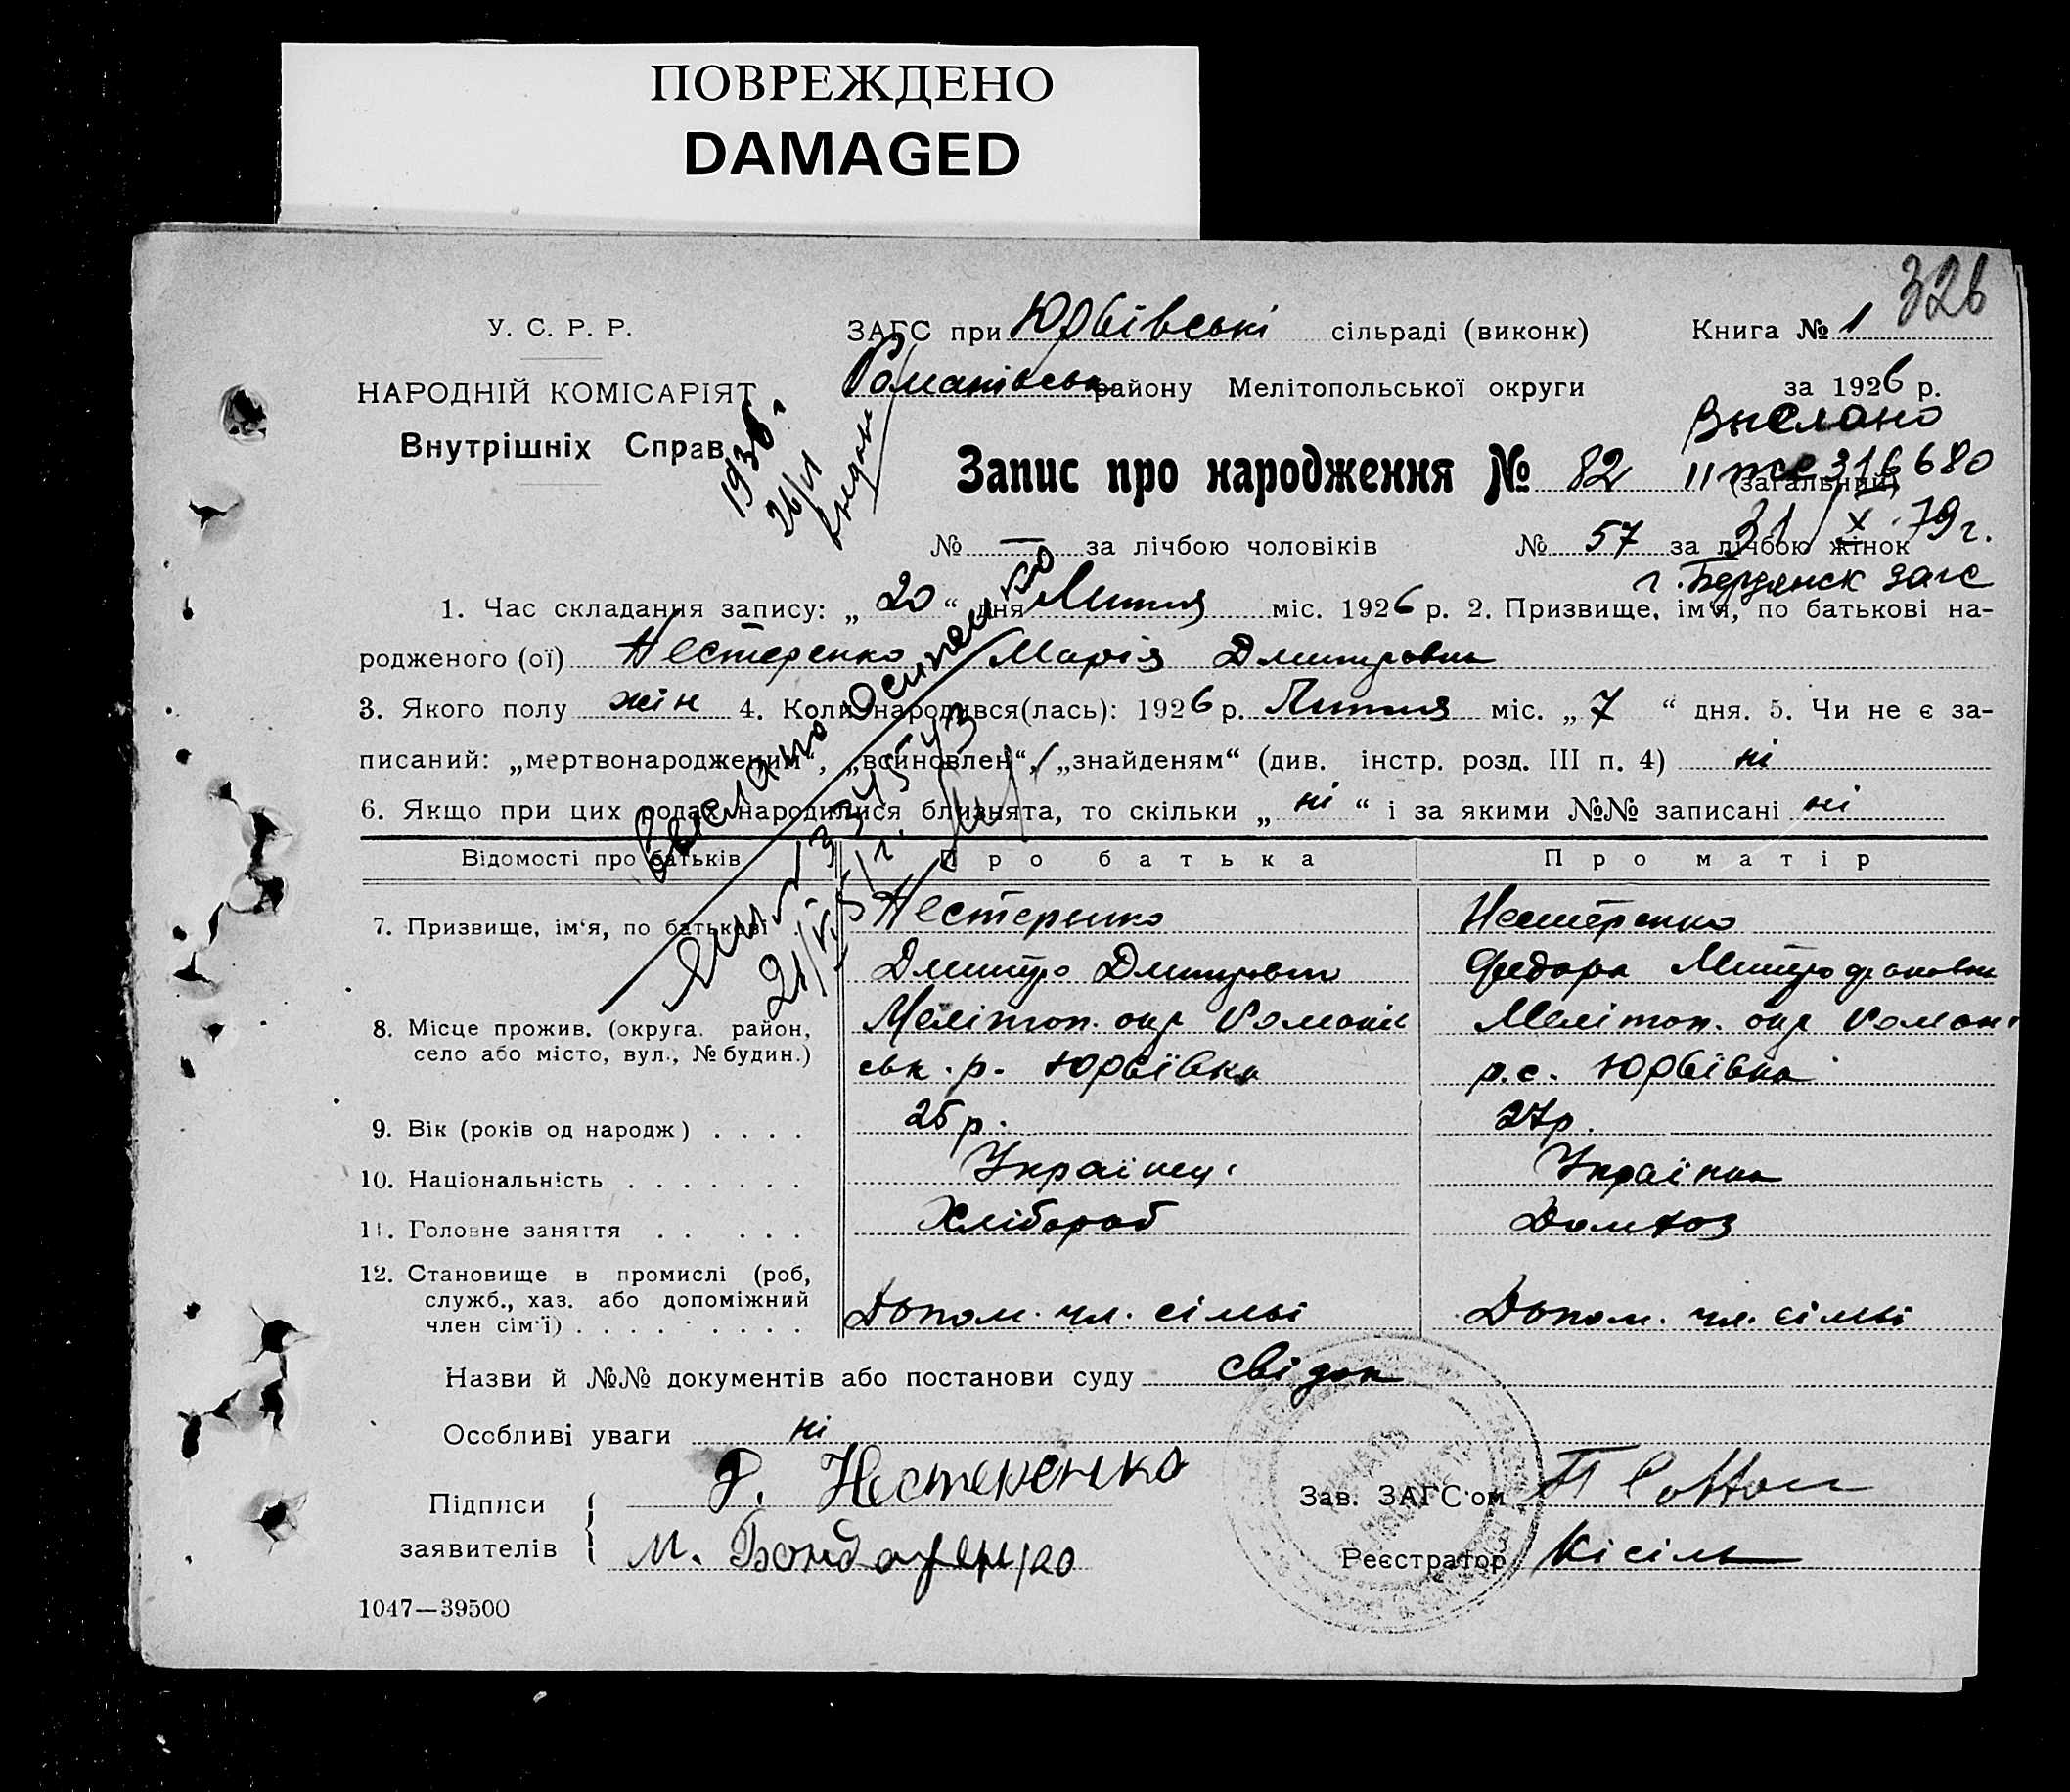 ПОВРЕЖДЕНО
DAMAGED
326
У. С. Р. Р.
НАРОДНІЙ КОМІСАРІЯТ
Внутрішніх Справ
ЗАГС при Юрьївські сільраді (виконк)
Книга № 1
Романівськ району Мелітопольської округи
за 1926 р.
Выслано
316680
31/X.79г.
г. Бердянск загс
1936 г.
26/VI
Запис про народження № 82 (загальний)
№ — за лічбою чоловіків
№ 57 за лічбою жінок
1. Час складання запису: „ 20 “ дня Лютня міс. 1926 р. 2. Призвище, ім'я, по батькові на-
родженого (ої) Нестеренко Марія Дмитровна
3. Якого полу жін 4. Коли народився(лась): 1926 р. Лютня міс. „ 7 “ дня. 5. Чи не є за-
писаний: „мертвонародженим“, „всиновлен“, „знайденям“ (див. інстр. розд. III п. 4) ні
6. Якщо при цих родах народилися близнята, то скільки „ ні “ і за якими №№ записані ні
Выслано Осипенко
Відомості про батьків
Про батька
Про матір
7. Призвище, ім'я, по батькові
Нестеренко
Нестеренко
Дмитро Дмитрович
Федора Митрофановна
8. Місце прожив. (округа. район,
село або місто, вул., № будин.)
Меліт​оп. окр Романів
Мелітоп. окр Роман
ськ. р. Юрьївка
р. с. Юрьївка
9. Вік (років од народж)
25 р.
27 р.
10. Національність
Українец
Українка
11. Головне заняття
Хлібороб
Домхоз
12. Становище в промислі (роб,
служб., хаз. або допоміжний
член сім'ї)
Допом. чл. сімьі
Допом. чл. сімьі
Назви й №№ документів або постанови суду свідок
Особливі уваги ні
Підписи
заявителів
Нестеренко
М. Бондаренко
Зав. ЗАГС'ом
Реєстратор Кісіль
1047—39500